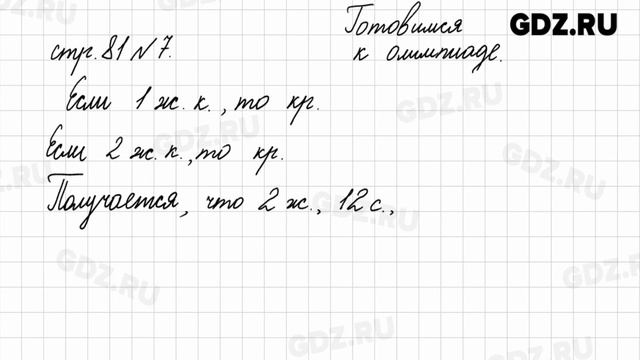 GDZ.RU
Готовимся
к олимпиаде.
стр. 81 №7.
Если 1 ж. к., то кр.
Если 2 ж. к., то кр.
Получается, что 2 ж., 12 с.,
GDZ.RU
GDZ.RU
GDZ.RU
GDZ.RU
GDZ.RU
GDZ.RU
GDZ.RU
GDZ.RU